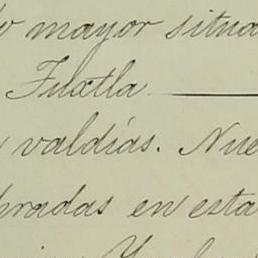 o mayor situa
Tuxtla
valdías. Nue
bradas en esta